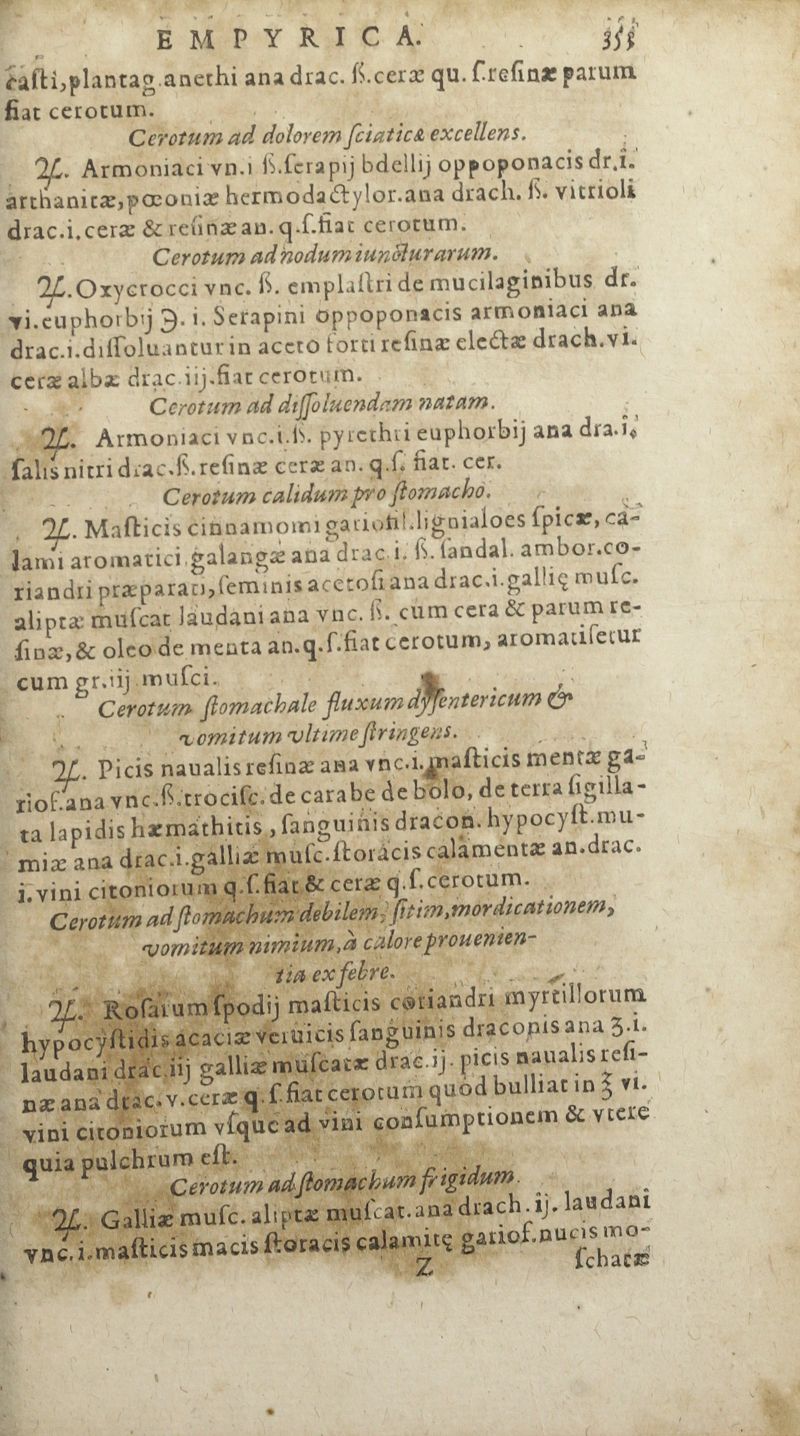 EMPYRICA.
casti,plantag.anethi ana drac. ß.ceræ qu. ſ.reſinæ parum
fiat cerotum.
Cerotum ad dolorem ſciaticæ excellens.
℞. Armoniaci vn.i ß.ſerapij bdellij oppoponacis dr.i.
arthanitæ,pœoniæ hermodactylor.ana drach. ß. vitrioli
drac.i.ceræ & reſinæ an. q.ſ.fiat cerotum.
Cerotum ad nodum iuncturarum.
℞.Oxycrocci vnc. ß. emplaſtri de mucilaginibus dr.
vi.euphorbij ℈. i. Serapini oppoponacis armoniaci ana
drac.i.diſſoluantur in aceto forti reſinæ electæ drach.vi.
ceræ albæ drac.iij.fiat cerotum.
Cerotum ad diſſoluendam natam.
℞. Armoniaci vnc.i.ß. pyrethri euphorbij ana dra.i.
ſalis nitri drac.ß.reſinæ ceræ an. q.ſ. fiat. cer.
Cerotum calidum pro ſtomacho.
℞. Maſticis cinnamomi gariofil.lignialoes ſpicæ, ca-
lami aromatici galangæ ana drac i. ß. ſandal. ambor.co-
riandri præparati,ſeminis acetoſi ana drac.i.gallię muſc.
aliptæ muſcat laudani ana vnc. ß. cum cera & parum re-
ſinæ,& oleo de menta an.q.ſ.fiat cerotum, aromatiſetur
cum gr.iij muſci.
Cerotum ſtomachale fluxum dyſentericum &
vomitum vltime ſtringens.
℞. Picis naualis reſinæ ana vnc.i.maſticis mentæ ga-
rioſ.ana vnc.ß.trociſc.de carabe de bolo, de terra ſigilla-
ta lapidis hæmathitis , ſanguinis dracon. hypocyſt.mu-
miæ ana drac.i.galliæ muſc.ſtoracis calamentæ an.drac.
i.vini citoniorum q.ſ.fiat & ceræ q.ſ.cerotum.
Cerotum ad ſtomachum debilem, ſitim,mordicationem,
vomitum nimium,à calore prouenien-
tia ex febre.
℞. Roſarum ſpodij maſticis coriandri myrtillorum
hypocyſtidis acaciæ veruicis ſanguinis draconis ana ʒ.i.
laudani drac.iij galliæ muſcatæ drac.ij. picis naualis reſi-
næ ana drac.v.ceræ q.ſ.fiat cerotum quod bulliat in ℥ vi.
vini citoniorum vſque ad vini conſumptionem & vtere
quia pulchrum eſt.
Cerotum ad ſtomachum frigidum.
℞. Galliæ muſc. aliptæ muſcat.ana drach.ij. laudani
vnc.i.maſticis macis ſtoracis calamitę gariof.nucis mo-
Z ſchatæ